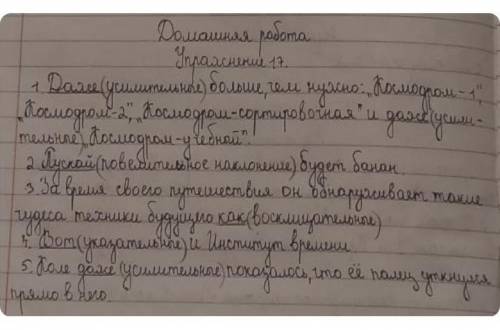 Домашняя работа
Упражнение 17.
1. Даже (усилительное) больше, чем нужно: „Космодром-1",
„Космодром-2", „Космодром-сортировочная" и даже (усили-
тельное) „Космодром-учебной".
2. Пускай (повелительное наклонение) будет банан.
3. За время своего путешествия он обнаруживает такие
чудеса техники будущего как (восклицательное)
4. Вот (указательное) и Институт времени
5. Коле даже (усилительное) показалось, что её палец уткнулся
прямо в него.